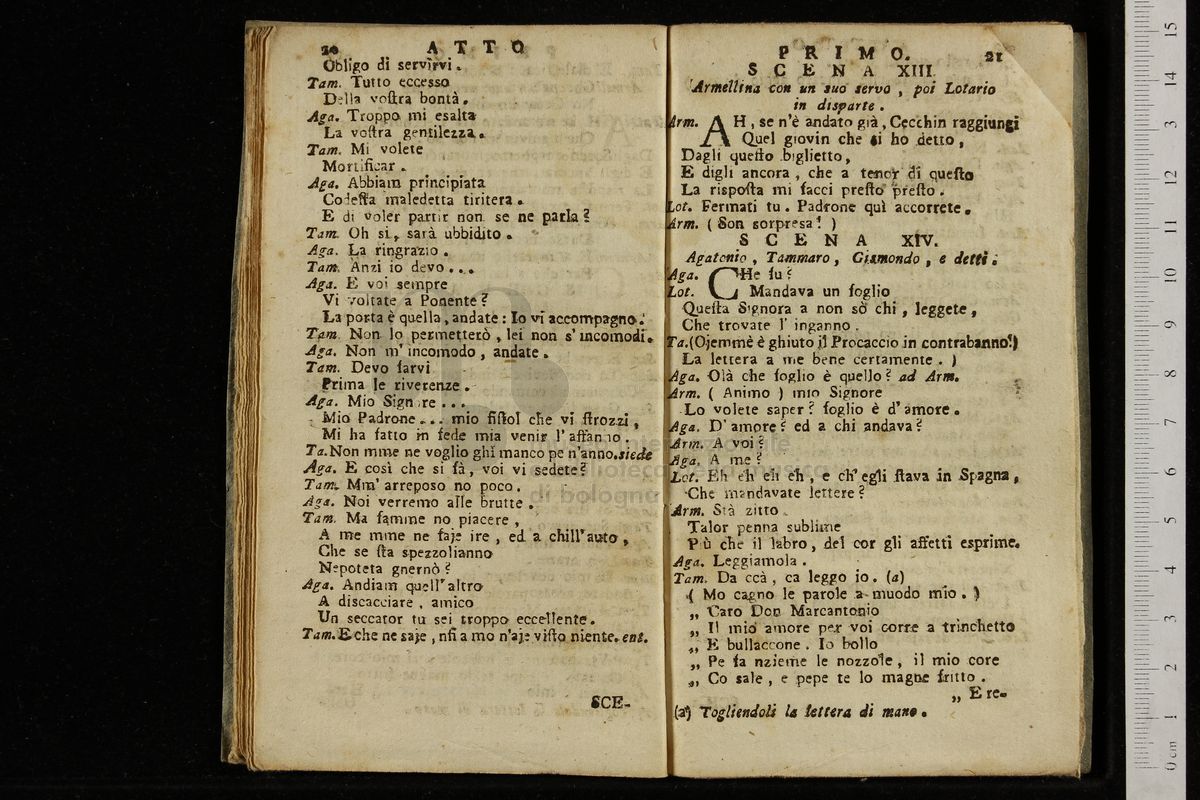 20 ATTO
Obligo di servirvi.
Tam. Tutto eccesso
Della voſtra bontà.
Aga. Troppo mi esalta
La voſtra gentilezza.
Tam. Mi volete
Mortificar.
Aga. Abbiam principiata
Codeſta maledetta tiritera.
E di voler partir non se ne parla?
Tam. Oh si, sarà ubbidito.
Aga. La ringrazio.
Tam. Anzi io devo...
Aga. E voi sempre
Vi voltate a Ponente?
La porta è quella, andate: Io vi accompagno.
Tam. Non lo permetterò, lei non s'incomodi.
Aga. Non m'incomodo, andate.
Tam. Devo farvi
Prima le riverenze.
Aga. Mio Signore...
Mio Padrone... mio fiſtol che vi ſtrozzi,
Mi ha fatto in fede mia venir l'affanno.
Ta. Non mme ne voglio ghì manco pe n'anno. siede
Aga. E così che si fà, voi vi sedete?
Tam. Mm' arreposo no poco.
Aga. Noi verremo alle brutte.
Tam. Ma famme no piacere,
A me mme ne faje ire, ed a chill'auto,
Che se ſta spezzolianno
Nepoteta gnernò?
Aga. Andiam quell'altro
A discacciare, amico
Un seccator tu sei troppo eccellente.
Tam. E che ne saje, nſi a mo n'aje viſto niente. ent.
SCE-
PRIMO. 21
SCENA XIII.
Armellina con un suo servo, poi Lotario
in disparte.
Arm. AH, se n'è andato già, Cecchin raggiungi
Quel giovin che ti ho detto,
Dagli queſto biglietto,
E digli ancora, che a tenor di queſto
La rispoſta mi facci preſto preſto.
Lot. Fermati tu. Padrone quì accorrete.
Arm. (Son sorpresa!)
SCENA XIV.
Agatonio, Tammaro, Gismondo, e detti.
Aga. CHe fu?
Lot. Mandava un foglio
Queſta Signora a non sò chi, leggete,
Che trovate l'inganno.
Ta. (Ojemmè è ghiuto il Procaccio in contrabanno!)
La lettera a me bene certamente.)
Aga. Olà che foglio è quello? ad Arm.
Arm. (Animo) mio Signore
Lo volete saper? foglio è d'amore.
Aga. D'amore? ed a chi andava?
Arm. A voi?
Aga. A me?
Lot. Eh eh eh eh, e ch'egli ſtava in Spagna,
Che mandavate lettere?
Arm. Stà zitto.
Talor penna sublime
Più che il labro, del cor gli affetti esprime.
Aga. Leggiamola.
Tam. Da ccà, ca leggo io. (a)
(Mo cagno le parole a muodo mio.)
„ Caro Don Marcantonio
„ Il mio amore per voi corre a trinchetto
„ E bullaccone. Io bollo
„ Pe fa nzieme le nozzole, il mio core
„ Co sale, e pepe te lo magne fritto.
„ E re-
(a) Togliendoli la lettera di mano.
museo internazionale
e biblioteca della musica
di bologna